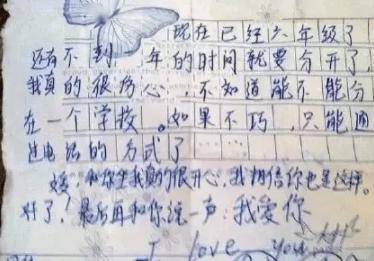 现在已经六年级了
还有不到一年的时间就要分开了,
我真的很伤心,不知道能不能分
在一个学校。如果不巧,只能通
过电话的方式了
我真的很开心,我相信你也是这样。
好了!最后再和你说一声:我爱你
I love you